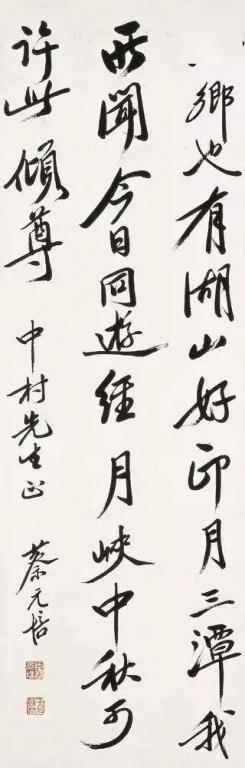 鄉也有湖山好印月三潭我
所聞今日同遊經月峽中秋可
許此傾尊
中村先生正 蔡元培